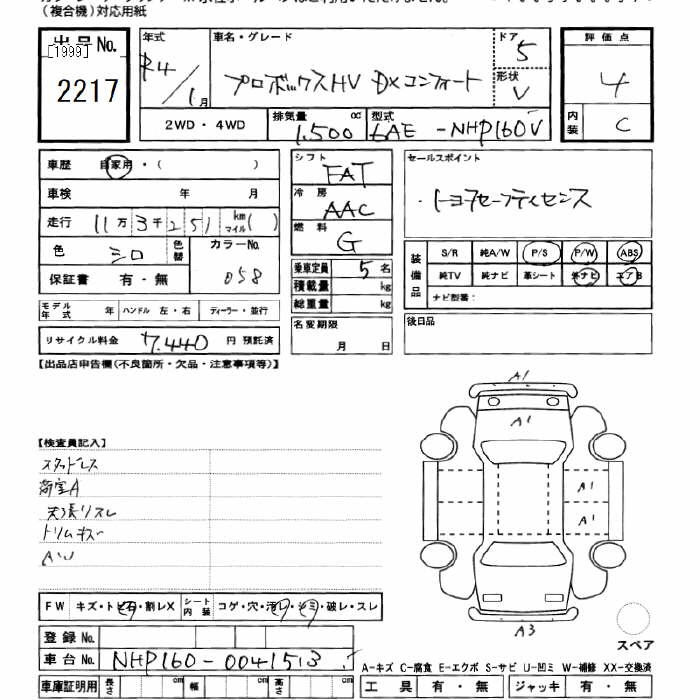 (複合機)対応用紙
出品No.
[1999]
2217
年式 R4/1月
車名・グレード プロボックスHV DXコンフォート
ドア 5
形状 V
2WD・4WD
排気量 1,500 cc
型式 6AE-NHP160V
評価点 4
内装 C
車歴 自家用・( )
車検 年 月
走行 11万3千251 km マイル( )
色 シロ 色替
カラーNo. 058
保証書 有・無
シフト FAT
冷房 AAC
燃料 G
乗車定員 5名
積載量 kg
総重量 kg
セールスポイント
・トヨタセーフティセンス
装備品
S/R 純A/W P/S P/W ABS
純TV 純ナビ 革シート 外ナビ エアB
ナビ型番:
モデル年式 年 ハンドル 左・右 ディーラー・並行
リサイクル料金 7,440 円 預託済
名変期限 月 日
後日品
【出品店申告欄(不良箇所・欠品・注意事項等)】
【検査員記入】
スタッドレス
荷室A
天張リスレ
トリムキズ
AW
A1
A1
A1
A1
A3
スペア
FW キズ・トビ石・割レX
シート内装 コゲ・穴・汚レ・シミ・破レ・スレ
登録No.
車台No. NHP160-0041513
車庫証明用 長さ cm 幅 cm 高さ cm
A-キズ C-腐食 E-エクボ S-サビ U-凹ミ W-補修 XX-交換済
工具 有・無 ジャッキ 有・無